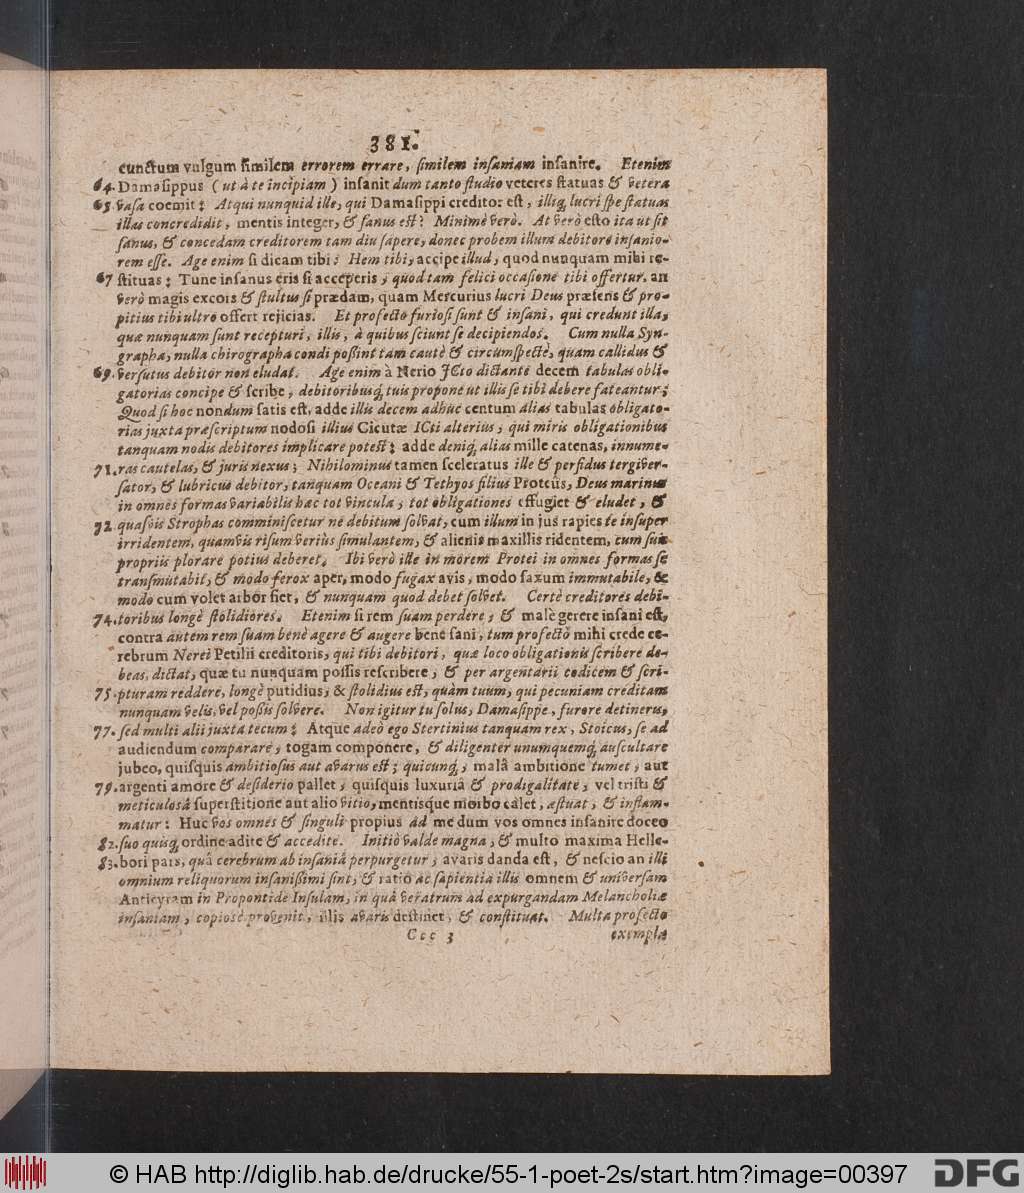 381.
cunctum vulgum similem errorem errare, similem insaniam insanire. Etenim
64. Damasippus ( ut à te incipiam ) insanit dum tanto studio veteres statuas & vetera
65. vasa coemit: Atqui nunquid ille, qui Damasippi creditor est, illiq; lucri spe statuas
illas concredidit, mentis integer, & sanus est? Minimè verò. At verò esto ita ut sit
sanus, & concedam creditorem tam diu sapere, donec probem illum debitore insanio-
rem esse. Age enim si dicam tibi: Hem tibi, accipe illud, quod nunquam mihi re-
67 stituas: Tune insanus eris si acceperis, quod tam felici occasione tibi offertur. an
verò magis excors & stultus si prædam, quam Mercurius lucri Deus præsens & pro-
pitius tibi ultro offert rejicias. Et profecto furiosi sunt & insani, qui credunt illa,
quæ nunquam sunt recepturi, illis, à quibus sciunt se decipiendos. Cum nulla Syn-
grapha, nulla chirographa condi possint tam cautè & circumspectè, quam callidus &
69. versutus debitor non eludat. Age enim à Nerio JCto dictante decem tabulas obli-
gatorias concipe & scribe, debitoribusq; tuis propone ut illis se tibi debere fateantur;
Quod si hoc nondum satis est, adde illis decem adhuc centum alias tabulas obligato-
rias juxta præscriptum nodosi illius Cicutæ ICti alterius, qui miris obligationibus
tanquam nodis debitores implicare potest; adde deniq; alias mille catenas, innume-
71. ras cautelas, & juris nexus; Nihilominus tamen sceleratus ille & perfidus tergiver-
sator, & lubricus debitor, tanquam Oceani & Tethyos filius Proteus, Deus marinus
in omnes formas variabilis hac tot vincula, tot obligationes effugiet & eludet, &
72. quasvis Strophas comminiscetur ne debitum solvat, cum illum in jus rapies te insuper
irridentem, quamvis risum veriùs simulantem, & alienis maxillis ridentem, cum suis
propriis plorare potius deberet. Ibi verò ille in morem Protei in omnes formas se
transmutabit, & modo ferox aper, modo fugax avis, modo saxum immutabile, &
modo cum volet arbor fiet, & nunquam quod debet solvet. Certè creditores debi-
74. toribus longè stolidiores. Etenim si rem suam perdere, & malè gerere insani est,
contra autem rem suam benè agere & augere bene sani, tum profectò mihi crede ce-
rebrum Nerei Petilii creditoris, qui tibi debitori, quæ loco obligationis scribere de-
beas, dictat, quæ tu nunquam possis rescribere, & per argentarii codicem & scri-
75. pturam reddere, longè putidius, & stolidius est, quàm tuum, qui pecuniam creditam
nunquam velis, vel possis solvere. Non igitur tu solus, Damasippe, furore detineris,
77. sed multi alii juxta tecum: Atque adeò ego Stertinius tanquam rex, Stoicus, se ad
audiendum comparare, togam componere, & diligenter unumquemq; auscultare
jubeo, quisquis ambitiosus aut avarus est; quicunq; malâ ambitione tumet, aut
79. argenti amore & desiderio pallet, quisquis luxuriâ & prodigalitate, vel tristi &
meticulosâ superstitione aut alio vitio, mentisque morbo calet, æstuat, & inflam-
matur: Huc vos omnes & singuli propius ad me dum vos omnes insanire doceo
82. suo quisq; ordine adite & accedite. Initiò valde magna, & multo maxima Helle-
83. bori pars, quâ cerebrum ab insaniâ perpurgetur, avaris danda est, & nescio an illi
omnium reliquorum insanissimi sint, & ratio ac sapientia illis omnem & universam
Anticyram in Propontide Insulam, in quâ veratrum ad expurgandam Melancholiæ
insaniam, copiosè provenit, illis avaris destinet, & constituat. Multa profecto
Ccc 3 exempla
© HAB http://diglib.hab.de/drucke/55-1-poet-2s/start.htm?image=00397
DFG